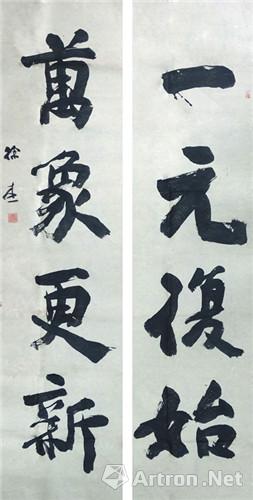 一元復始
萬象更新
徐
Artron.Net